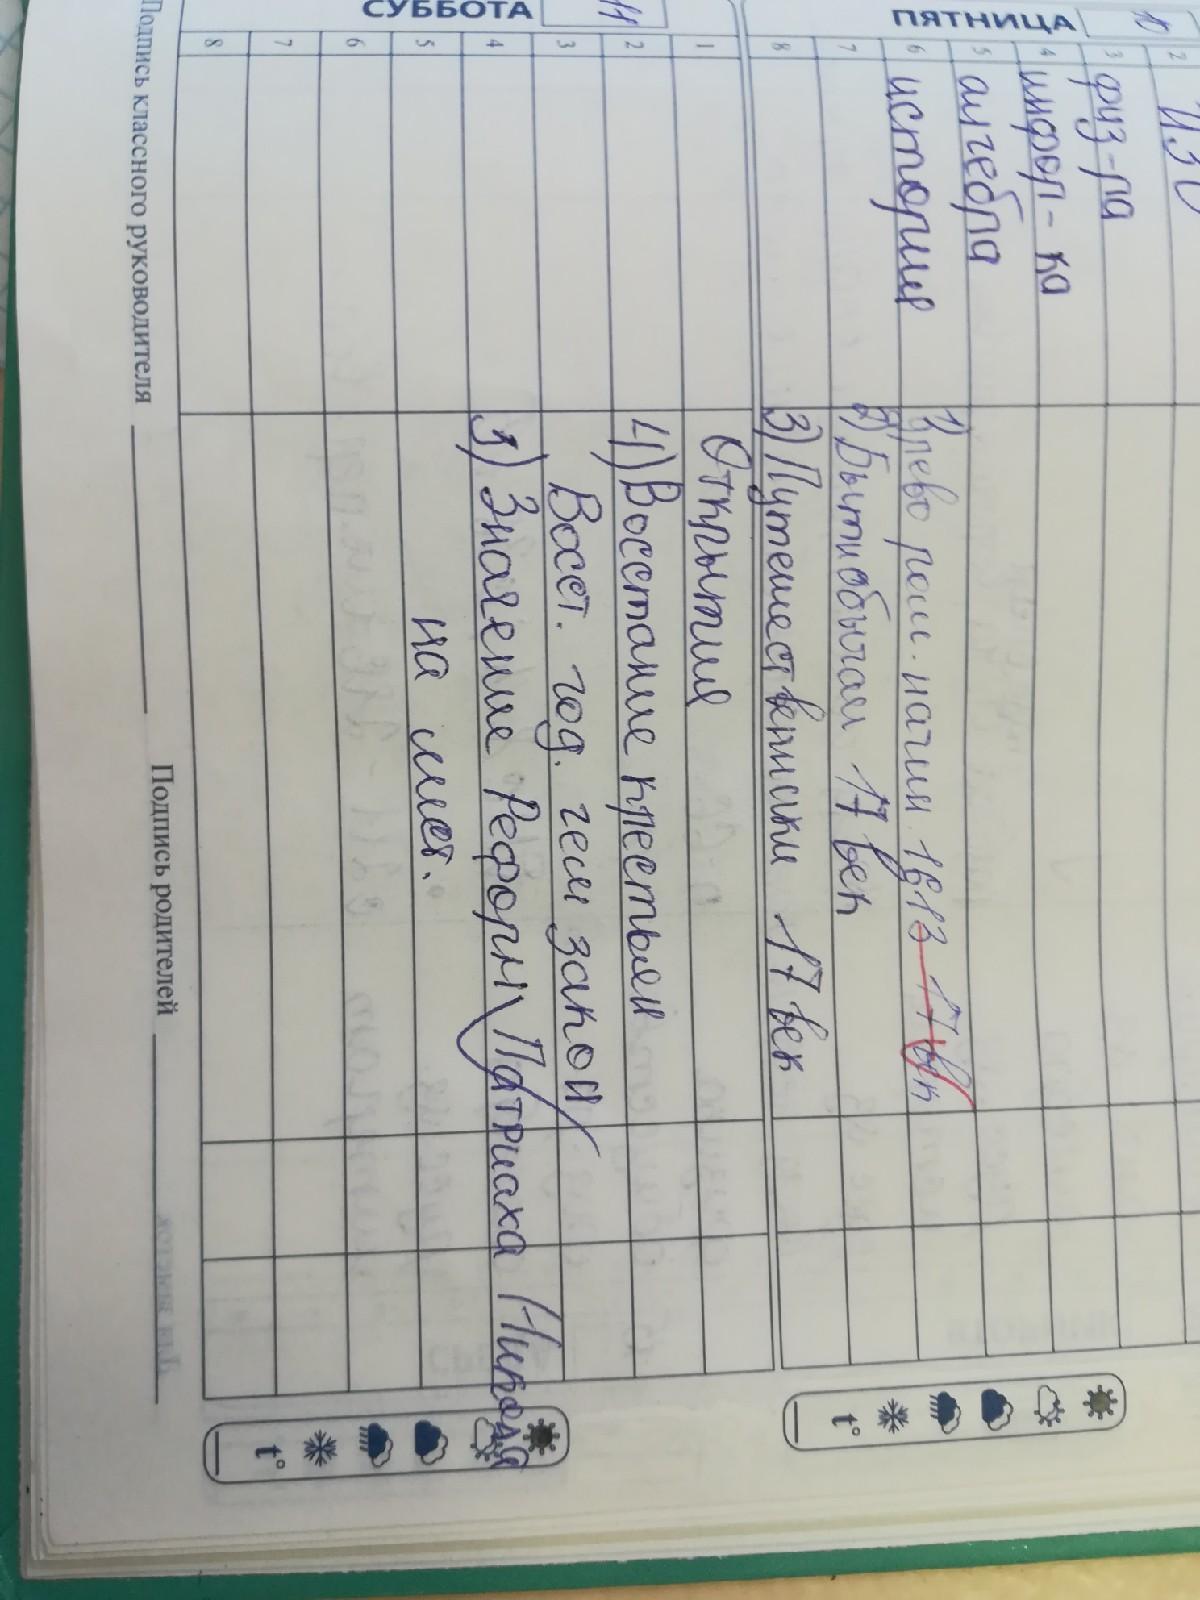 ПЯТНИЦА
2 ИЗО
3 физ-ра
4 инфор-ка
5 алгебра
6 история 1) древо ром. начин 1613 17 век
7 2) Быт и обычаи 17 век
8 3) Путешественники 17 век
СУББОТА 11
1 Открытия
2 4) Восстание крестьян
3 Восст. год. чем закон
4 5) Значение Реформ Патриаха Никона
5 на лист.
6
7
8
Подпись классного руководителя
Подпись родителей
t°
t°